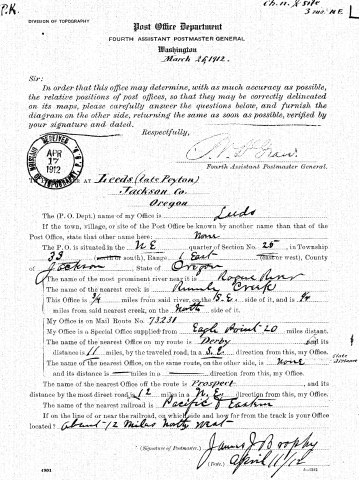 P.K.
Ch. n. ¼ site
3 mi. N.E.
DIVISION OF TOPOGRAPHY
Post Office Department
FOURTH ASSISTANT POSTMASTER GENERAL
Washington
March 26, 1912.
Sir:
In order that this office may determine, with as much accuracy as possible,
the relative positions of post offices, so that they may be correctly delineated
on its maps, please carefully answer the questions below, and furnish the
diagram on the other side, returning the same as soon as possible, verified by
your signature and dated.
Respectfully,
Fourth Assistant Postmaster General.
RECEIVED
APR
17
1912
AT Leeds (late Peyton)
Jackson Co.
Oregon
The (P. O. Dept.) name of my Office is Leeds
If the town, village, or site of the Post Office be known by another name than that of the
Post Office, state that other name here: None
The P. O. is situated in the N E quarter of Section No. 25, in Township
33 (north or south), Range 1 East (east or west), County
of Jackson, State of Oregon
The name of the most prominent river near it is Rogue River
The name of the nearest creek is Creek
This Office is ¾ miles from said river, on the S.E. side of it, and is
miles from said nearest creek, on the North side of it.
My Office is on Mail Route No. 73231
My Office is a Special Office supplied from Eagle Point 20 miles distant.
The name of the nearest Office on my route is Derby and its
distance is 11 miles, by the traveled road, in a S. E. direction from this, my Office.
The name of the nearest Office, on the same route, on the other side, is None
and its distance is — miles in a — direction from this, my Office.
State
distance
The name of the nearest Office off the route is Prospect, and its
distance by the most direct road is 12 miles in a N. E. direction from this, my Office.
The name of the nearest railroad is Pacific & Eastern
If on the line of or near the railroad, on which side and how far from the track is your Office
located? about 12 miles north west
(Signature of Postmaster.) James J Brophy
(Date.) April 11/12
4901